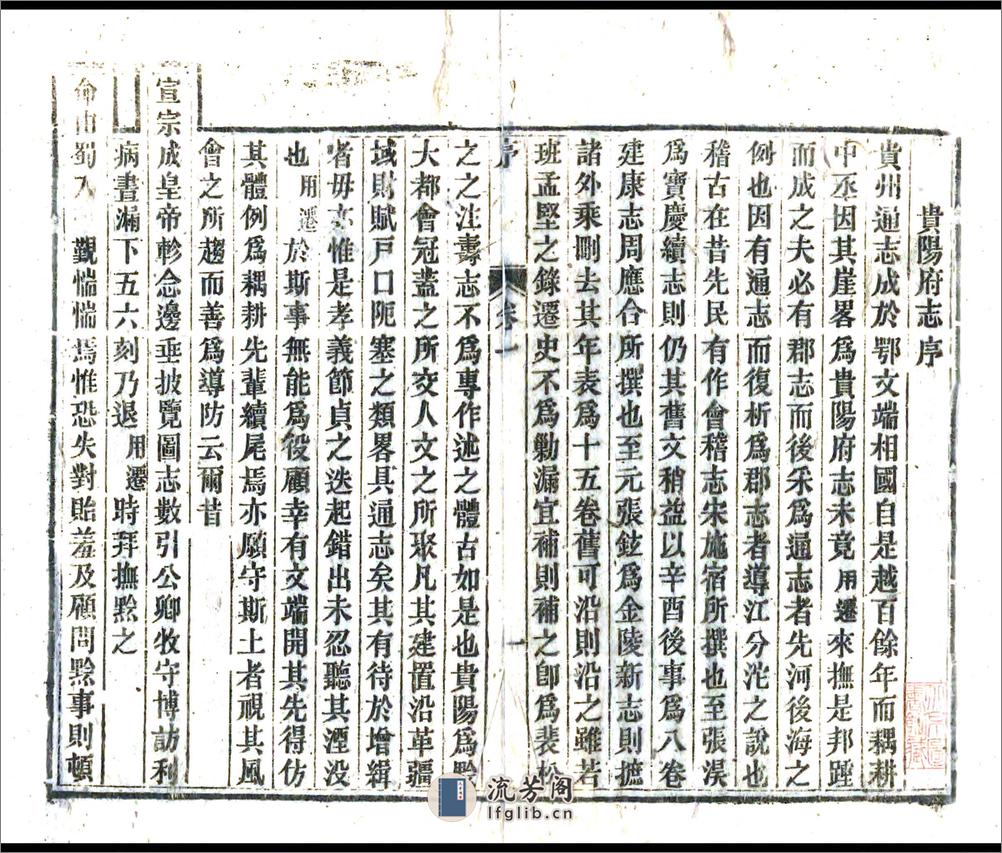 貴陽府志序
貴州通志成於鄂文端相國自是越百餘年而耦耕
中丞因其崖畧為貴陽府志未竟用遷來撫是邦踵
而成之夫必有郡志而後釆為通志者先河後海之
例也因有通志而復析為郡志者導江分沱之說也
稽古在昔先民有作會稽志宋施宿所撰也至張淏
為寶慶續志則仍其舊文稍益以辛酉後事為八卷
建康志周應合所撰也至元張鉉為金陵新志則摭
諸外乘刪去其年表為十五卷舊可沿則沿之雖若
班孟堅之錄遷史不為勦漏宜補則補之卽為裴松
序
卷一
一
之之注壽志不為專作述之體古如是也貴陽為黔
大都會冠蓋之所交人文之所聚凡其建置沿革疆
域財賦戸口阨塞之類畧具通志矣其有待於增緝
者毋亦惟是孝義節貞之迭起錯出未忍聽其湮没
也用遷於斯事無能為役顧幸有文端開其先得仿
其體例為耦耕先輩續尾焉亦願守斯土者視其風
會之所趨而善為導防云爾昔
宣宗成皇帝軫念邊垂披覽圖志數引公卿牧守博訪利
病晝漏下五六刻乃退用遷時拜撫黔之
命由蜀入覲惴惴焉惟恐失對貽羞及顧問黔事則頓
流芳阁
lfglib.cn